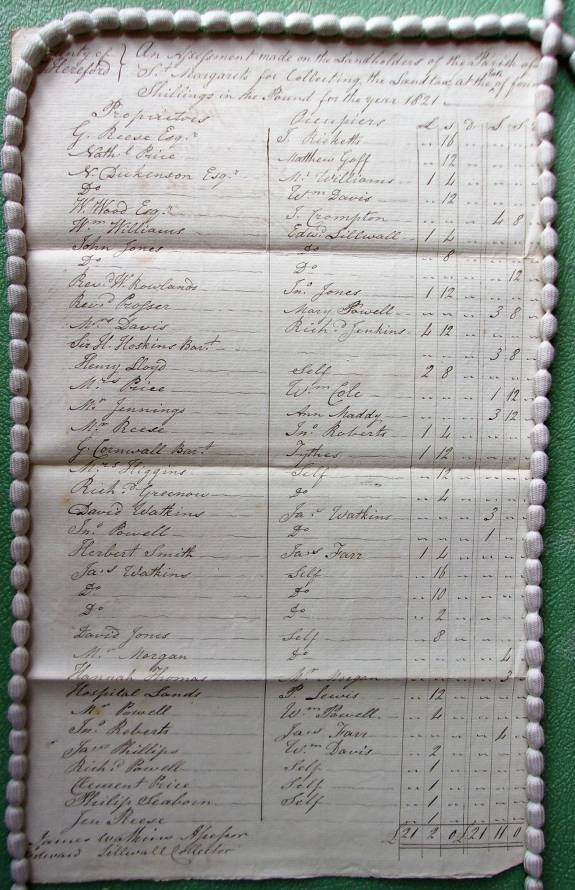 County of Hereford } An Assessment made on the Landholders of the Parish of
St. Margarets for Collecting the Landtax at the rate of four
Shillings in the Pound for the year 1821
Proprietors Occupiers £ S D £ S
G. Reese Esqr. T. Ricketts 16
Nathl. Price Matthew Goff 12
N. Dickenson Esqr. Mr. Williams 1 4
Do Wm Davis 12
W. Wood Esqr. S. Crompton 4 8
Wm Williams Edwd. Lillwall 1 4
John Jones Do 8
Do Do 12
Revd. W. Rowlands Jno. Jones 1 12
Revd. Prosser Mary Powell 3 8
Mrs Davis Richd. Jenkins 4 12
Sir H. Hoskins Bart. 3 8
Henry Lloyd Self 2 8
Mrs Price Wm Cole 1 12
Mr. Jennings Ann Maddy 3 12
Mr. Reese Jno. Roberts 1 4
G. Cornwall Bart. Tythes 1 12
Mrs Higgins Self 12
Richd. Greenow Do 4
David Watkins Jas. Watkins 3
Jno. Powell Do 1
Herbert Smith Jas Farr 1 4
Jas Watkins Self 16
Do Do 10
Do Do 2
David Jones Self 8
Mr. Morgan Do 4
Hannah Thomas Mr. Morgan 3
Hospital Lands P. Lewis 12
Mr. Powell Wm Powell 4
Jno. Roberts Jas Farr 4
Jas Phillips Wm Davis 2
Richd. Powell Self 1
Clement Price Self 1
Philip Seaborn Self 1
Jen Reese 1
James Watkins Assessor £21 2 0 £21 11 0
Edward Lillwall Collector